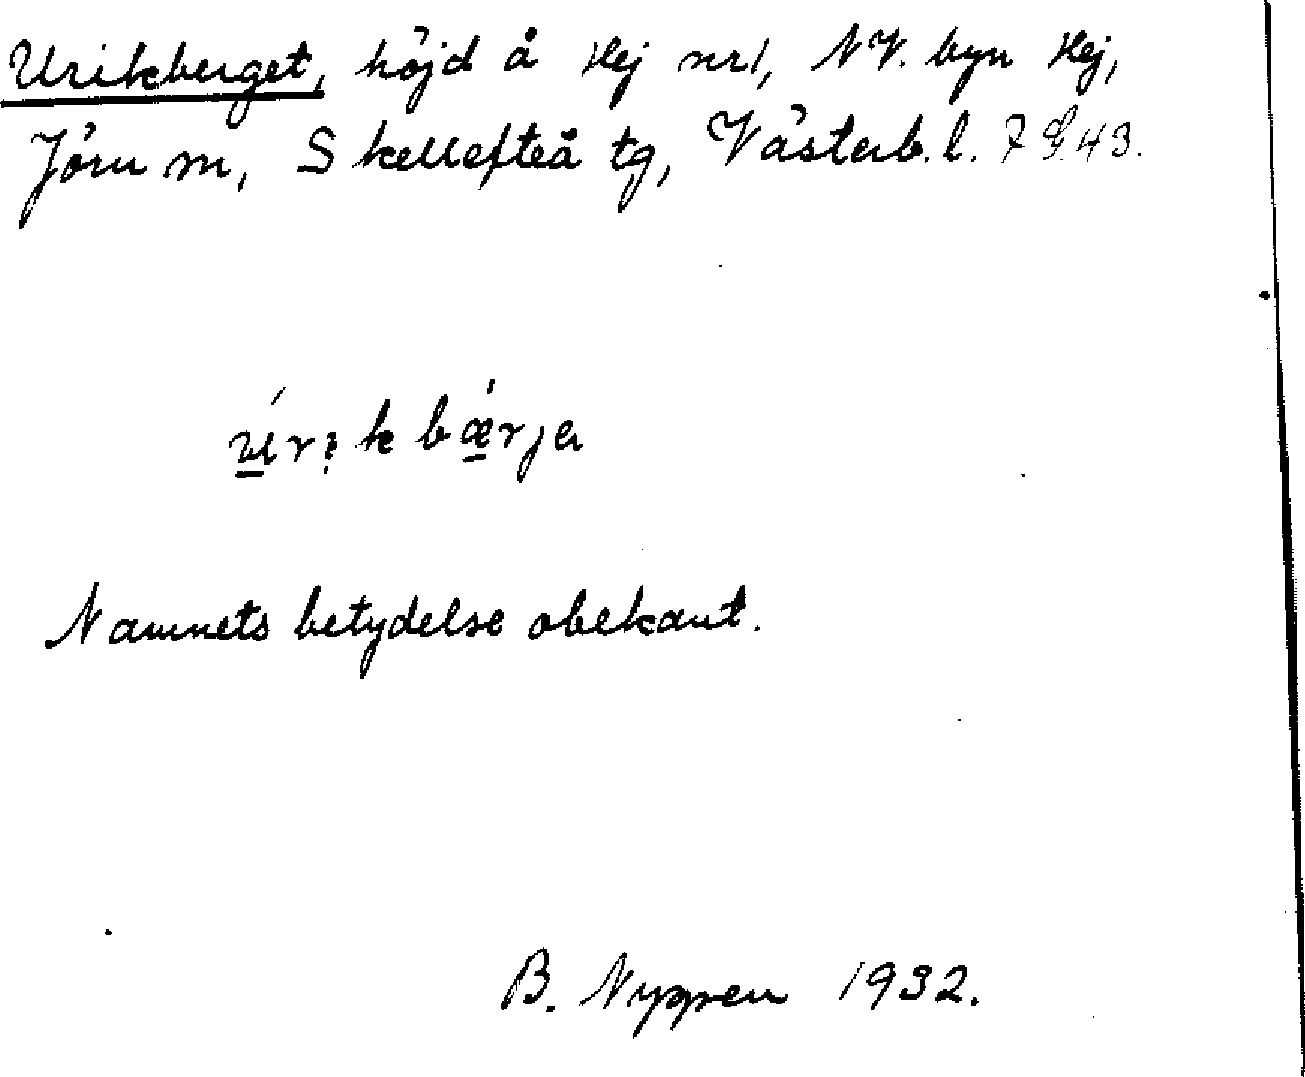 Urikberget, höjd å Hej nr 1, NV. byn Hej,
Jörn sn, Skellefteå tg, Västerb. l. 43.
bǽrja
Namnets betydelse obekant.
B. Nyppen 1932.